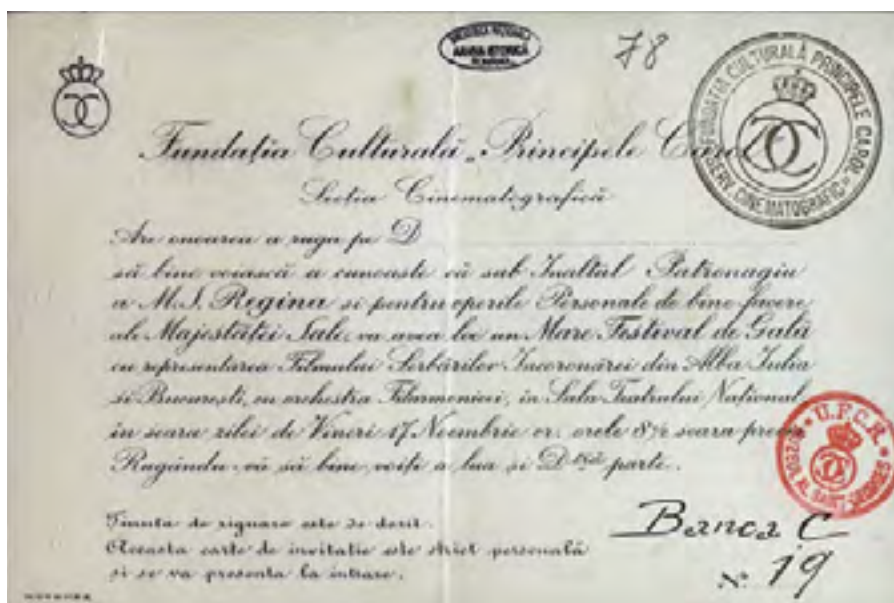 78
FUNDAȚIA CULTURALĂ PRINCIPELE CAROL
SERV. CINEMATOGRAFIC
Fundația Culturală „Principele Carol
Secția Cinematografică
Are onoarea a ruga pe D
să bine voiască a cunoaste că sub Inaltul Patronagiu
a M.S. Regina si pentru operile Personale de bine facere
ale Majestăței Sale, va avea loc un Mare Festival de Gală
cu reprezentarea Filmului Serbărilor Incoronărei din Alba Iulia
si București, cu orchestra Filarmonicei, in Sala Teatrului Național,
in seara zilei de Vineri 17 Noembrie cr. orele 8½ seara precis
Rugându-vă să bine voiți a lua si D-voastră parte.
U.F.C.R.
Tinuta de riguare este de dorit.
Aceasta carte de invitatie este strict personală
si se va presenta la intrare.
Banca C
N. 19